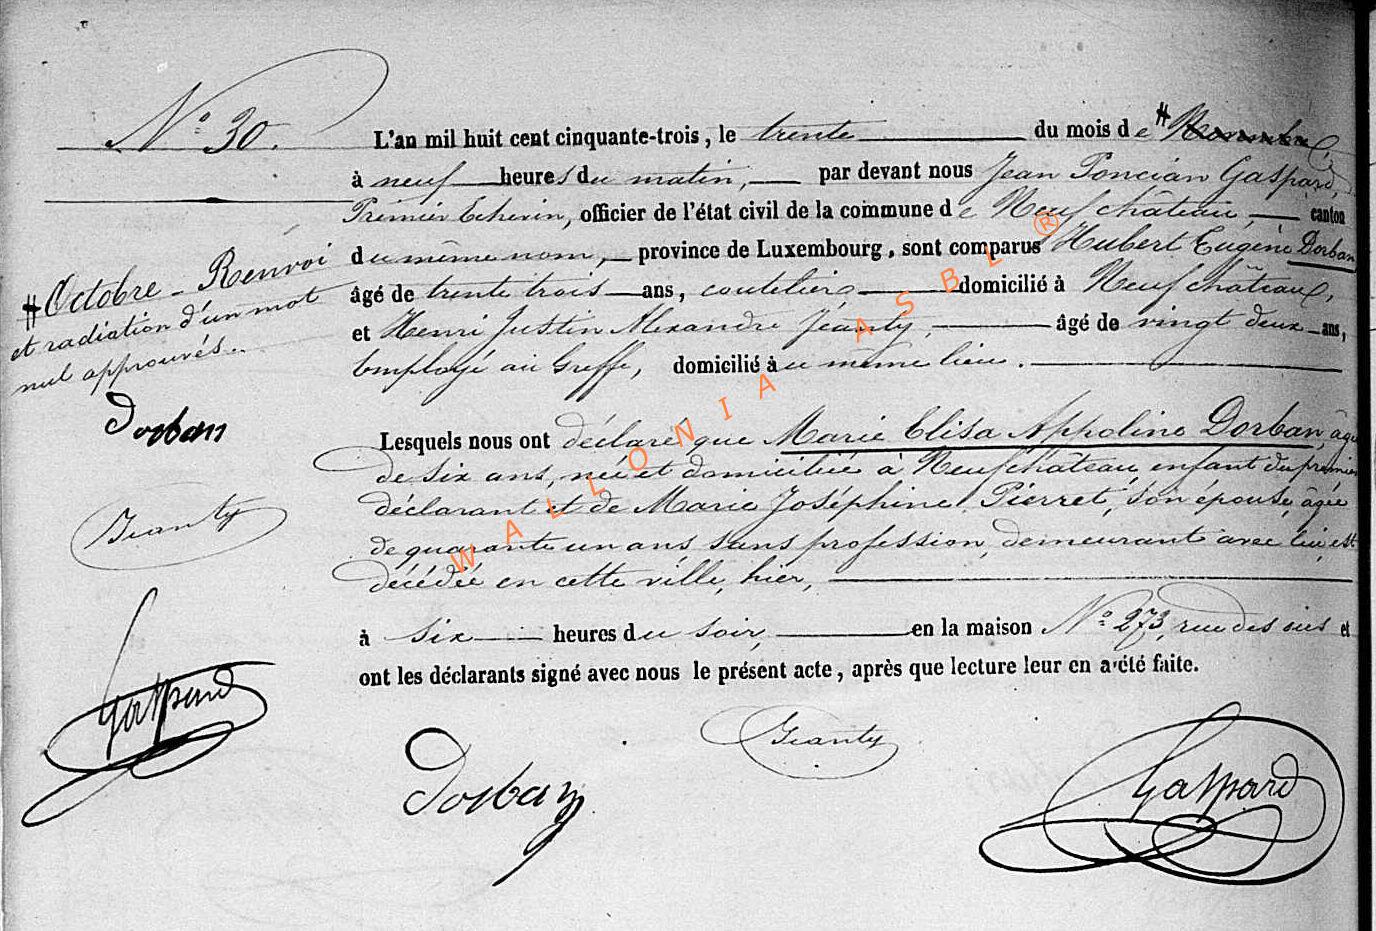 N.° 30.
L'an mil huit cent cinquante-trois, le trente du mois de #
à neuf heures du matin, par devant nous Jean Poncian Gaspard,
Premier Echevin, officier de l'état civil de la commune de Neufchâteau, canton
du même nom, province de Luxembourg, sont comparus Hubert Eugène Dorban
âgé de trente trois ans, coutelier, domicilié à Neufchâteau,
et Henri Justin Alexandre Jeanty, âgé de vingt deux ans,
Employé au Greffe, domicilié au même lieu.
Lesquels nous ont déclaré que Marie Elisa Appoline Dorban, âgée
de six ans, née et domiciliée à Neufchâteau, enfant du premier
déclarant et de Marie Joséphine Pierret, son épouse, âgée
de quarante un ans sans profession, demeurant avec lui, est
décédée en cette ville, hier,
à six heures du soir, en la maison N.° 273, rue des et
ont les déclarants signé avec nous le présent acte, après que lecture leur en a été faite.
# Octobre - Renvoi
et radiation d'un mot
nul approuvés.
Dorban
Jeanty
Gaspard
Dorban
Jeanty
Gaspard
WALLONIA ASBL ®